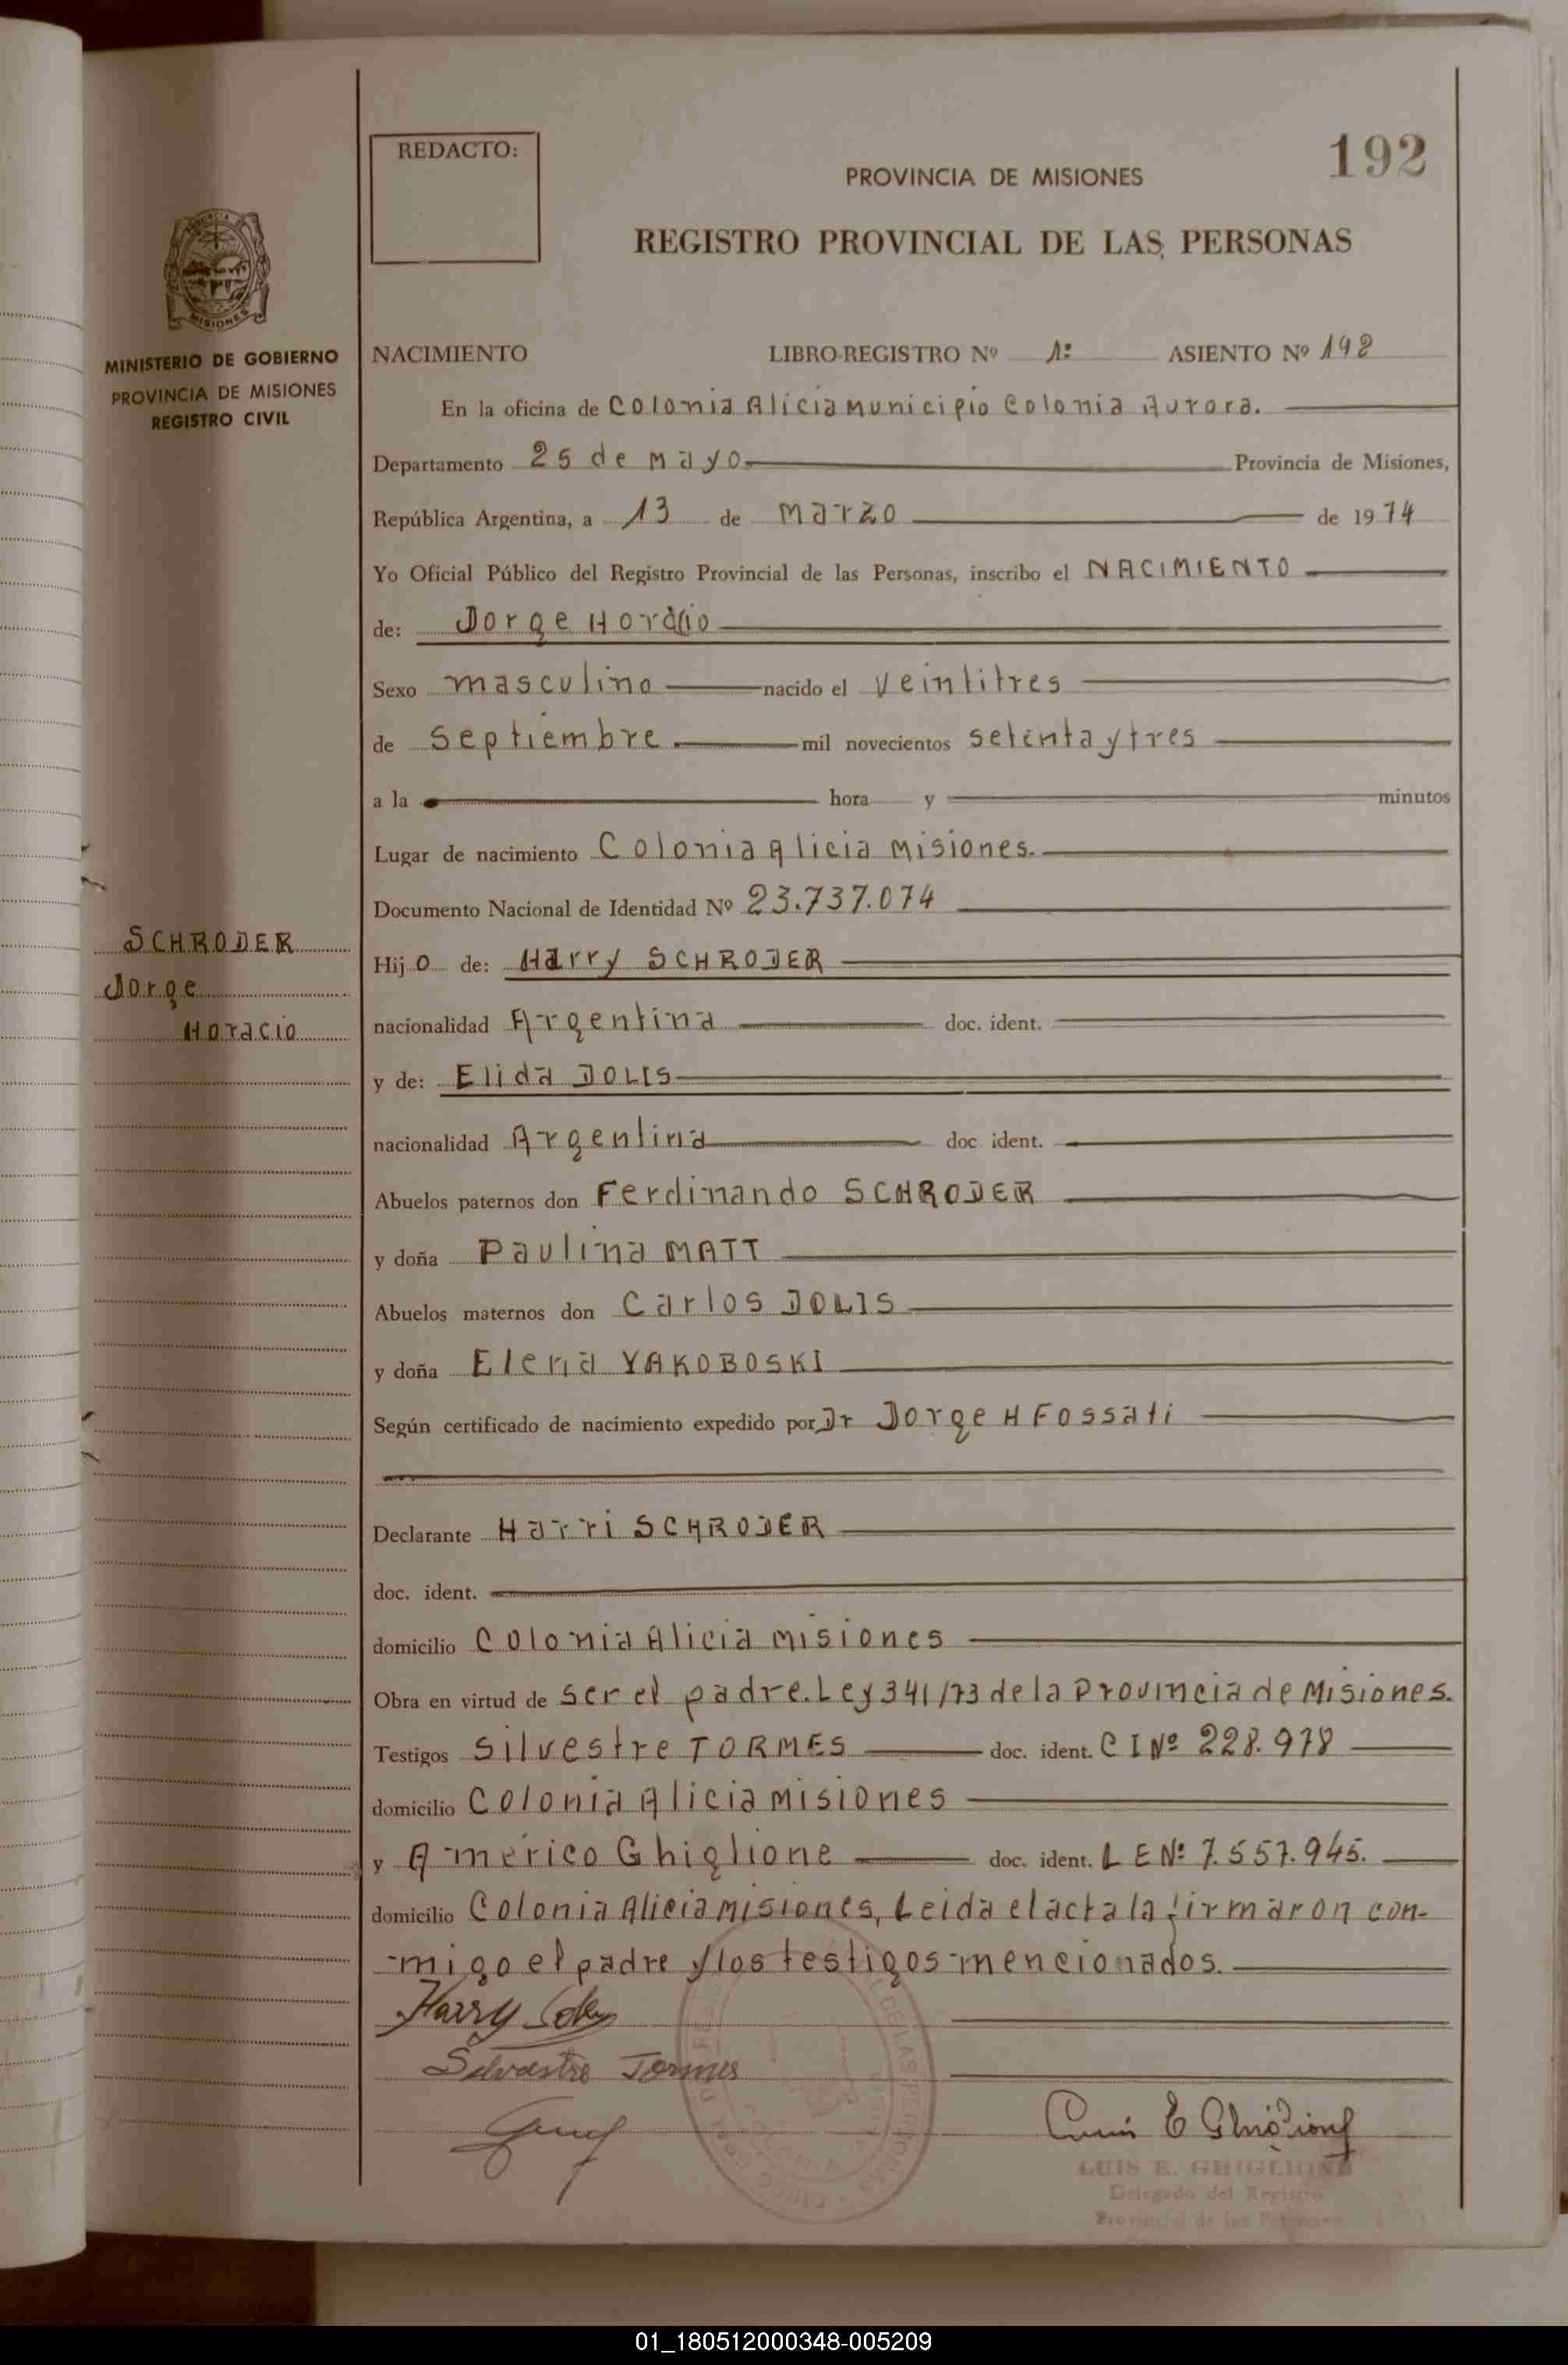 192
REDACTO:
PROVINCIA DE MISIONES
REGISTRO PROVINCIAL DE LAS PERSONAS
MISIONES
MINISTERIO DE GOBIERNO
PROVINCIA DE MISIONES
REGISTRO CIVIL
NACIMIENTO LIBRO-REGISTRO Nº 1º ASIENTO Nº 192
En la oficina de Colonia Alicia Municipio Colonia Aurora.
Departamento 25 de Mayo. Provincia de Misiones,
República Argentina, a 13 de Marzo de 1974
Yo Oficial Público del Registro Provincial de las Personas, inscribo el NACIMIENTO
de: Jorge Horacio
Sexo masculino nacido el veintitres
de Septiembre mil novecientos setenta y tres
a la hora y minutos
Lugar de nacimiento Colonia Alicia Misiones.
Documento Nacional de Identidad Nº 23.737.074
SCHRODER
Jorge
Horacio
Hijo de: Harry SCHRODER
nacionalidad Argentina doc. ident.
y de: Elida DOLIS
nacionalidad Argentina doc ident.
Abuelos paternos don Ferdinando SCHRODER
y doña Paulina MATT
Abuelos maternos don Carlos DOLIS
y doña Elena YAKOBOSKI
Según certificado de nacimiento expedido por Dr Jorge H Fossati
Declarante Harri SCHRODER
doc. ident.
domicilio Colonia Alicia Misiones
Obra en virtud de ser el padre. Ley 341/73 de la Provincia de Misiones.
Testigos Silvestre TORMES doc. ident. C I Nº 228.978
domicilio Colonia Alicia Misiones
y Américo Ghiglione doc. ident. L E Nº 7.557.945.
domicilio Colonia Alicia Misiones, Leida el acta la firmaron con-
migo el padre y los testigos mencionados.
Harry
Silvestre Tormes
LUIS E. GHIGLIONE
Delegado del Registro
Provincial de las Personas
01_180512000348-005209